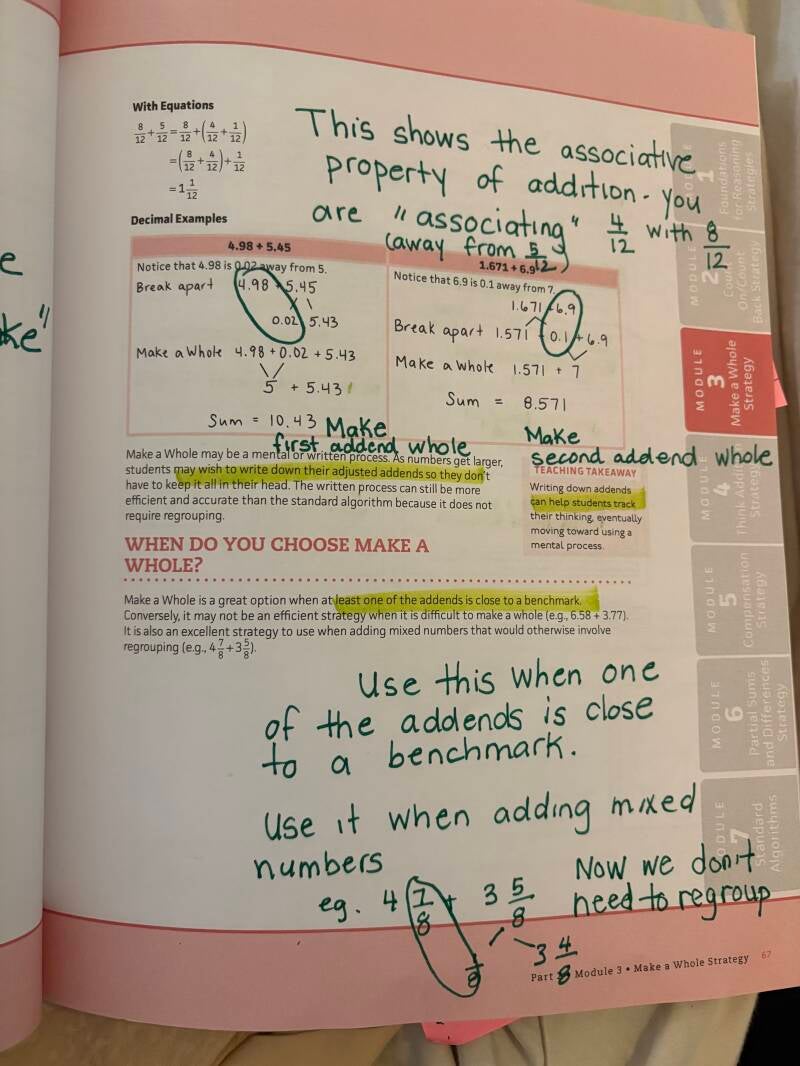 e
ke"
With Equations
8/12 + 5/12 = 8/12 + (4/12 + 1/12)
= (8/12 + 4/12) + 1/12
= 1 1/12
This shows the associative
property of addition - you
are "associating" 4/12 with 8/12
(away from 5/12)
Decimal Examples
4.98 + 5.45
Notice that 4.98 is 0.02 away from 5.
Break apart 4.98 + 5.45
0.02 5.43
Make a Whole 4.98 + 0.02 + 5.43
5 + 5.43
Sum = 10.43
Make
first addend whole
1.671 + 6.9
Notice that 6.9 is 0.1 away from 7.
1.671 + 6.9
Break apart 1.571 + 0.1 + 6.9
Make a Whole 1.571 + 7
Sum = 8.571
Make
second addend whole
Make a Whole may be a mental or written process. As numbers get larger,
students may wish to write down their adjusted addends so they don't
have to keep it all in their head. The written process can still be more
efficient and accurate than the standard algorithm because it does not
require regrouping.
TEACHING TAKEAWAY
Writing down addends
can help students track
their thinking, eventually
moving toward using a
mental process.
WHEN DO YOU CHOOSE MAKE A
WHOLE?
Make a Whole is a great option when at least one of the addends is close to a benchmark.
Conversely, it may not be an efficient strategy when it is difficult to make a whole (e.g., 6.58 + 3.77).
It is also an excellent strategy to use when adding mixed numbers that would otherwise involve
regrouping (e.g., 4 7/8 + 3 5/8).
Use this when one
of the addends is close
to a benchmark.
Use it when adding mixed
numbers
eg. 4 7/8 + 3 5/8
1/8 3 4/8
Now we don't
need to regroup
Part Module 3 • Make a Whole Strategy 67
MODULE 1
Foundations
for Reasoning
Strategies
MODULE 2
Count
On/Count
Back Strategy
MODULE 3
Make a Whole
Strategy
MODULE 4
Think Addition
Strategy
MODULE 5
Compensation
Strategy
MODULE 6
Partial Sums
and Differences
Strategy
MODULE 7
Standard
Algorithms